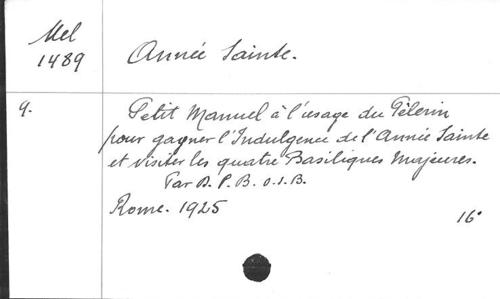 Mel
1489
Année Sainte.
9.
Petit Manuel à l'usage du Pèlerin
pour gagner l'Indulgence de l'Année Sainte
et visiter les quatre Basiliques Majeures.
Par D. P. B. o. s. B.
Rome. 1925
16°